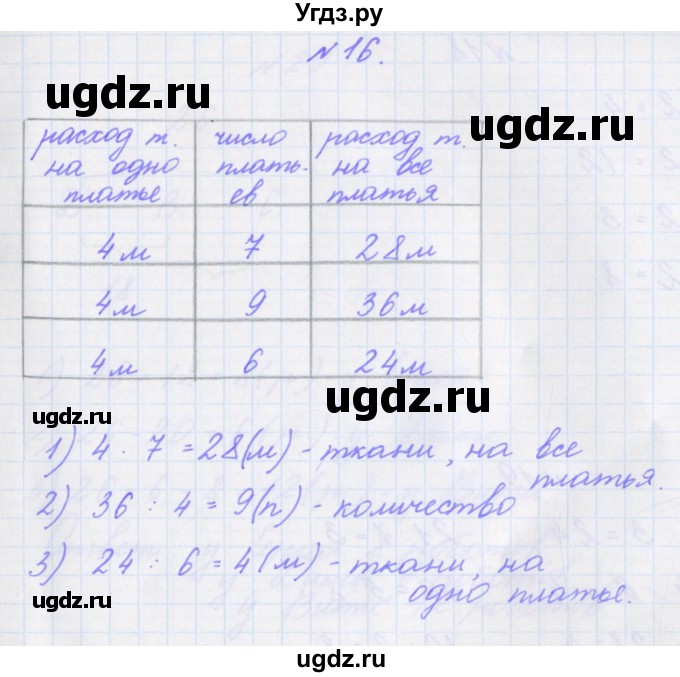 Угдз.ру
№16.
ugdz.ru
ugdz.ru
расход т. на одно платье | число плать-ев | расход т. на все платья
4м | 7 | 28м
4м | 9 | 36м
4м | 6 | 24м
ugdz.ru
ugdz.ru
1) 4 · 7 = 28(м) - ткани, на все
платья.
ugdz.ru
2) 36 : 4 = 9(п) - количество
3) 24 : 6 = 4(м) - ткани, на
одно платье.
ugdz.ru
ugdz.ru